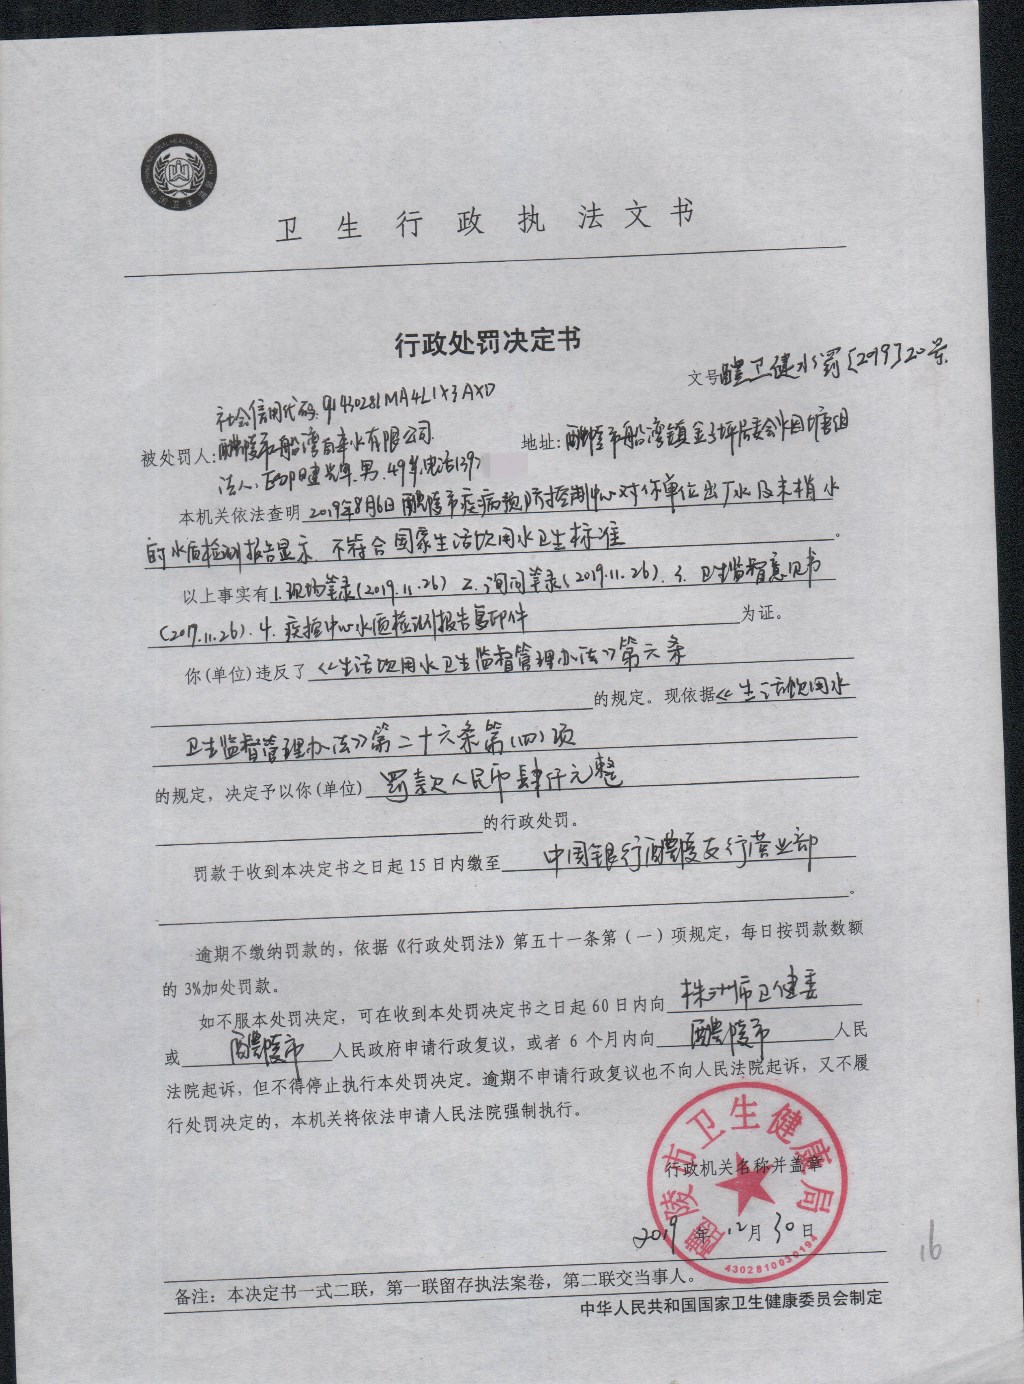 卫生行政执法文书
行政处罚决定书
文号醴卫健水罚[2019]20号
社会信用代码:91430281MA4L1X3AXD
被处罚人:醴陵市船湾自来水有限公司 地址:醴陵市船湾镇金子坪居委会水田塘组
法人: 健 男.49岁.电话139
本机关依法查明2019年8月6日醴陵市疾病预防控制中心对你单位出厂水及末梢水
的水质检测报告显示.不符合国家生活饮用水卫生标准。
以上事实有1.现场笔录(2019.11.26) 2.询问笔录(2019.11.26).3.卫生监督意见书
(2019.11.26).4.疾控中心水质检测报告复印件为证。
你(单位)违反了《生活饮用水卫生监督管理办法》第六条
的规定。现依据《生活饮用水
卫生监督管理办法》第二十六条第(四)项
的规定,决定予以你(单位)罚款人民币肆仟元整
的行政处罚。
罚款于收到本决定书之日起15日内缴至中国银行醴陵支行营业部
。
逾期不缴纳罚款的,依据《行政处罚法》第五十一条第(一)项规定,每日按罚款数额
的3%加处罚款。
如不服本处罚决定,可在收到本处罚决定书之日起60日内向株洲市卫健委
或醴陵市人民政府申请行政复议,或者6个月内向醴陵市人民
法院起诉,但不得停止执行本处罚决定。逾期不申请行政复议也不向人民法院起诉,又不履
行处罚决定的,本机关将依法申请人民法院强制执行。
醴陵市卫生健康局
行政机关名称并盖章
2019年12月30日
4302810030194
16
备注:本决定书一式二联,第一联留存执法案卷,第二联交当事人。
中华人民共和国国家卫生健康委员会制定